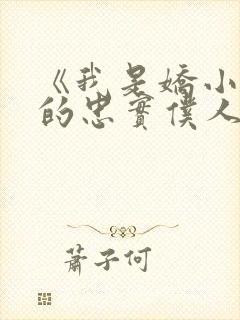 《我是嬌小
的忠實僕人
蕭子何